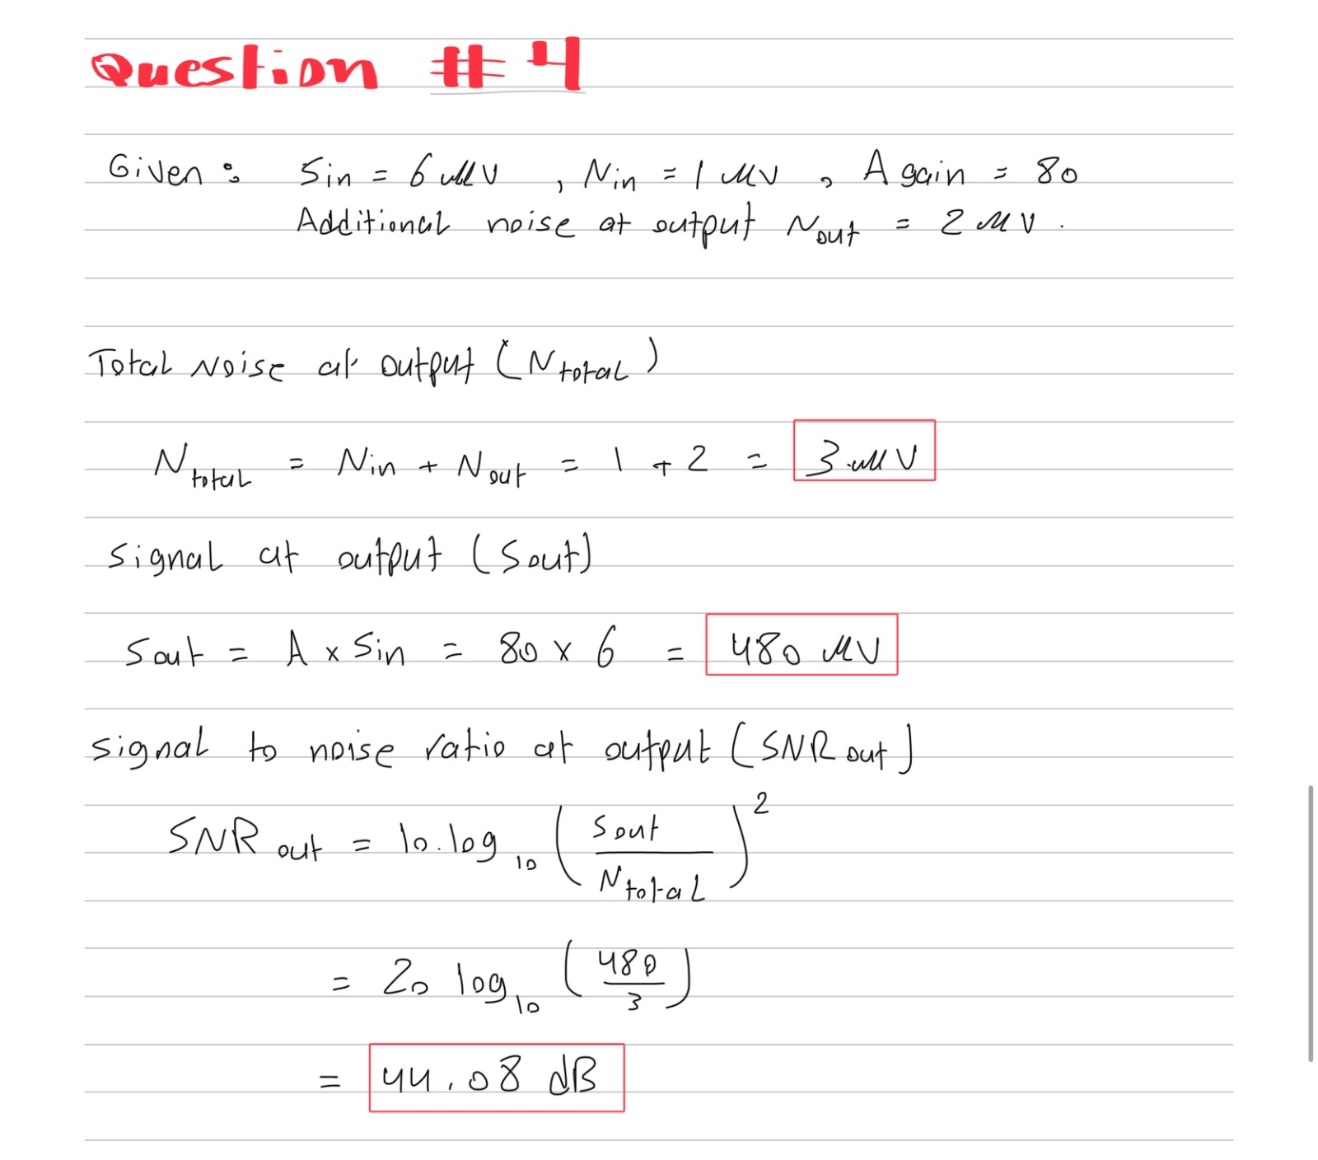 Question #4
Given: Sin = 6 MV , Nin = 1 MV , A gain = 80
Additional noise at output Nout = 2 MV .
Total Noise at output (Ntotal)
Ntotal = Nin + Nout = 1 + 2 = 3 MV
Signal at output (Sout)
Sout = A x Sin = 80 x 6 = 480 MV
Signal to noise ratio at output (SNR out)
SNR out = 10.log10 (Sout/Ntotal)^2
= 20 log10 (480/3)
= 44.08 dB